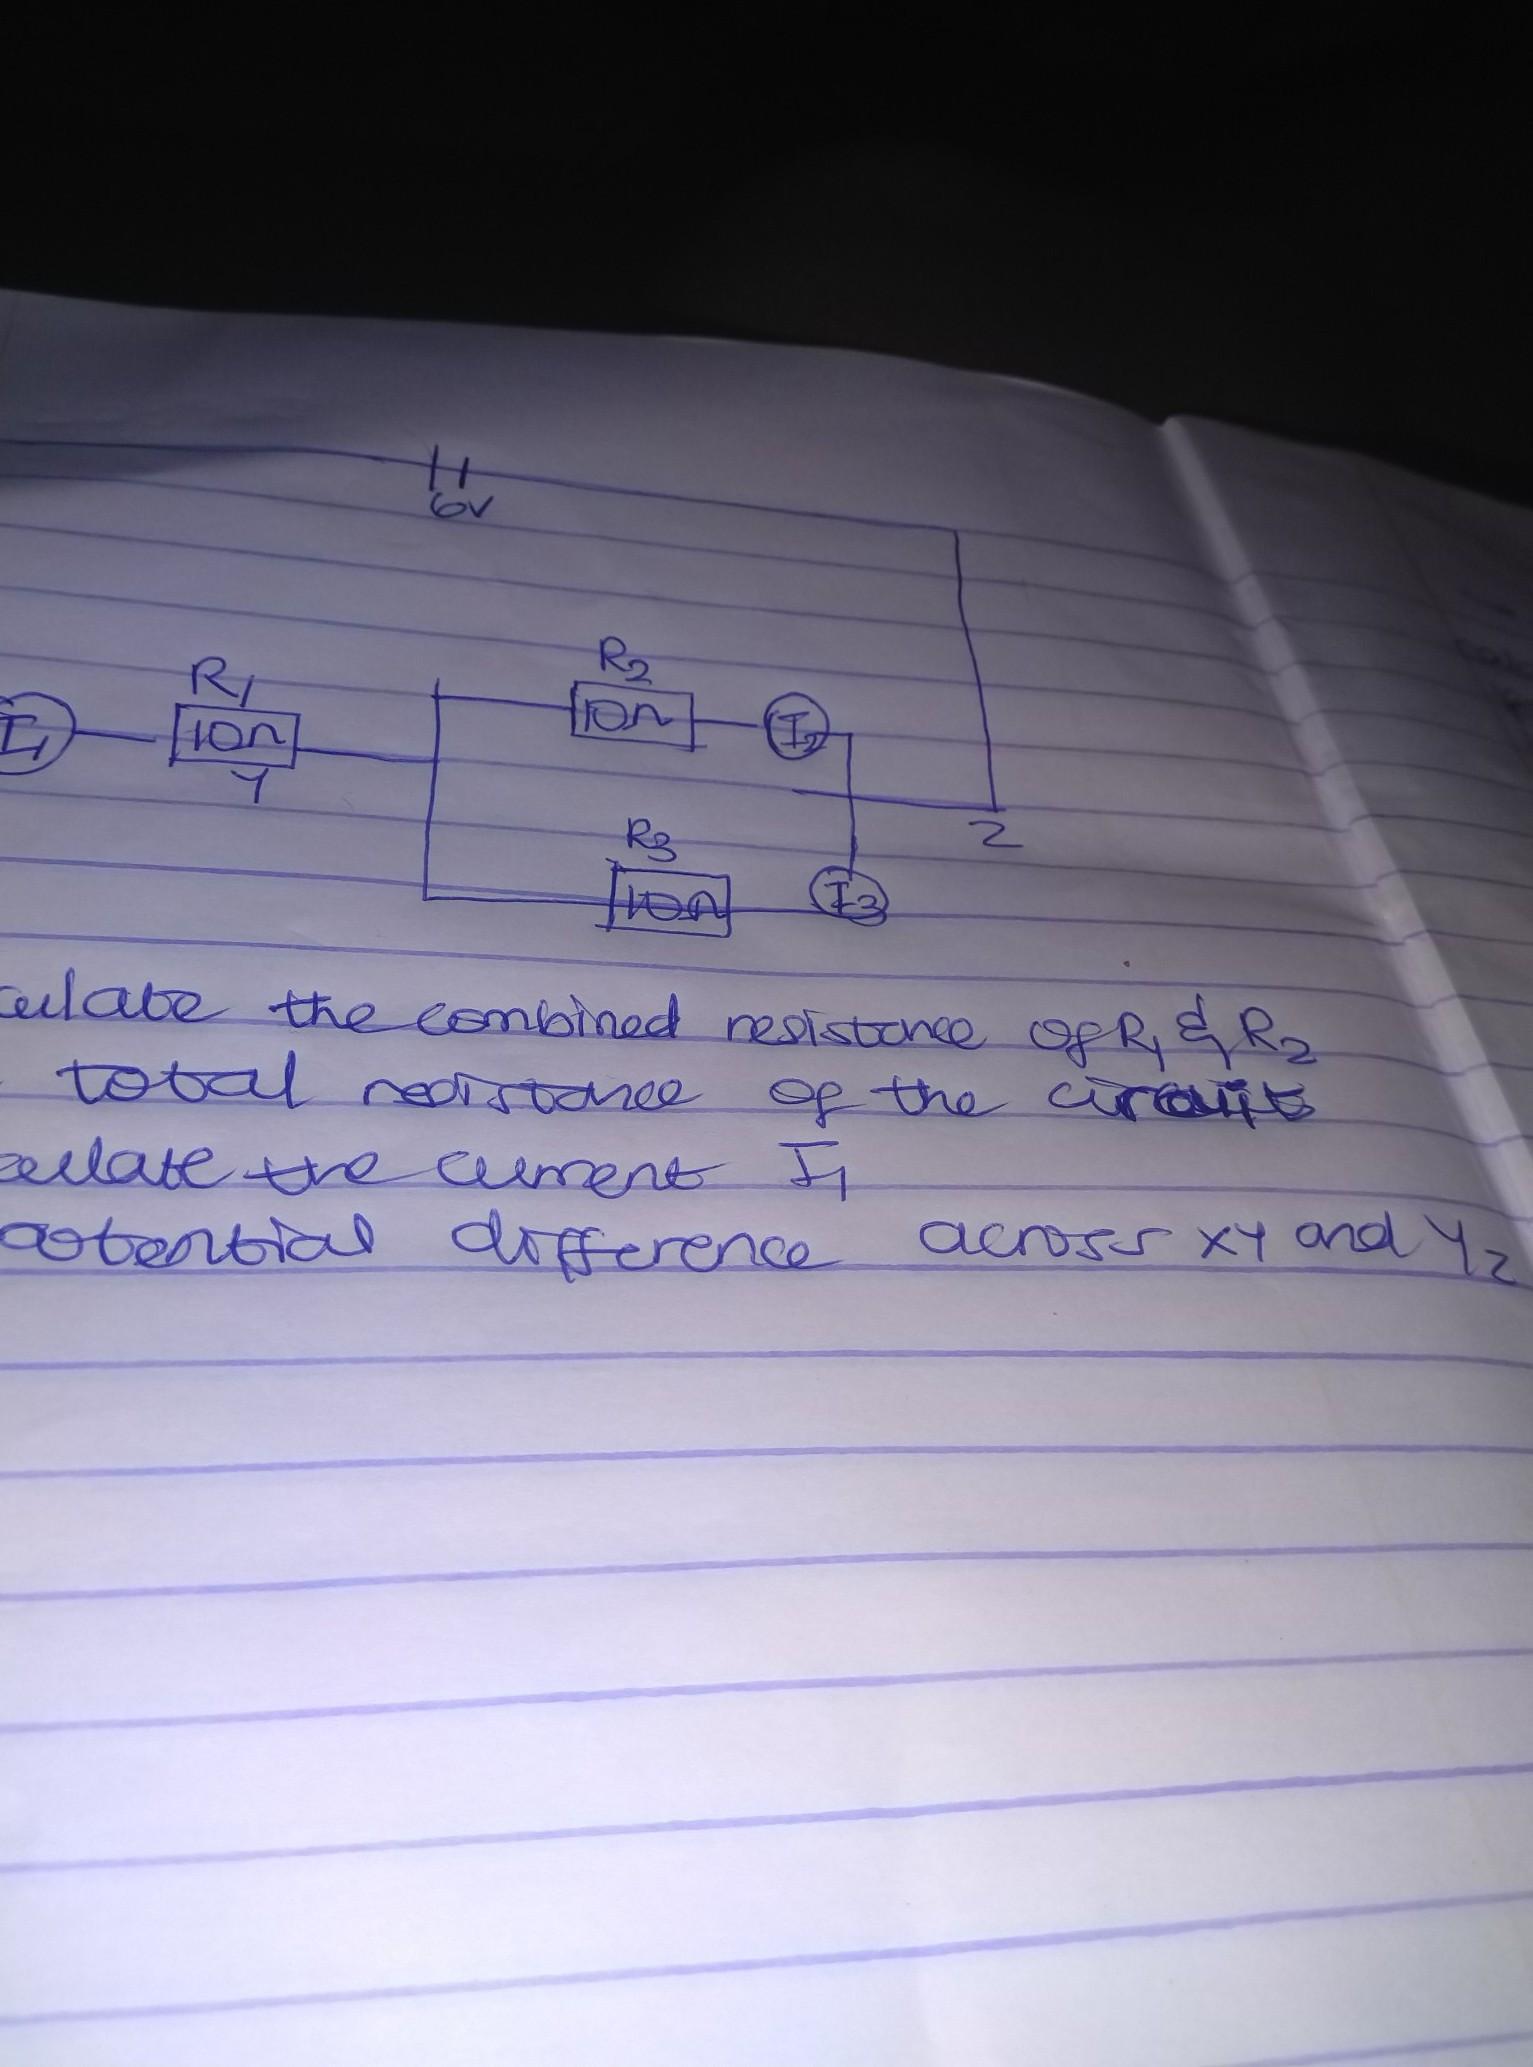 6V
R1
10Ω
Y
R2
10Ω
I2
I1
R3
10Ω
I3
Z
culate the combined resistance of R1 & R2
total resistance of the circuit
culate the current I1
potential difference across XY and YZ